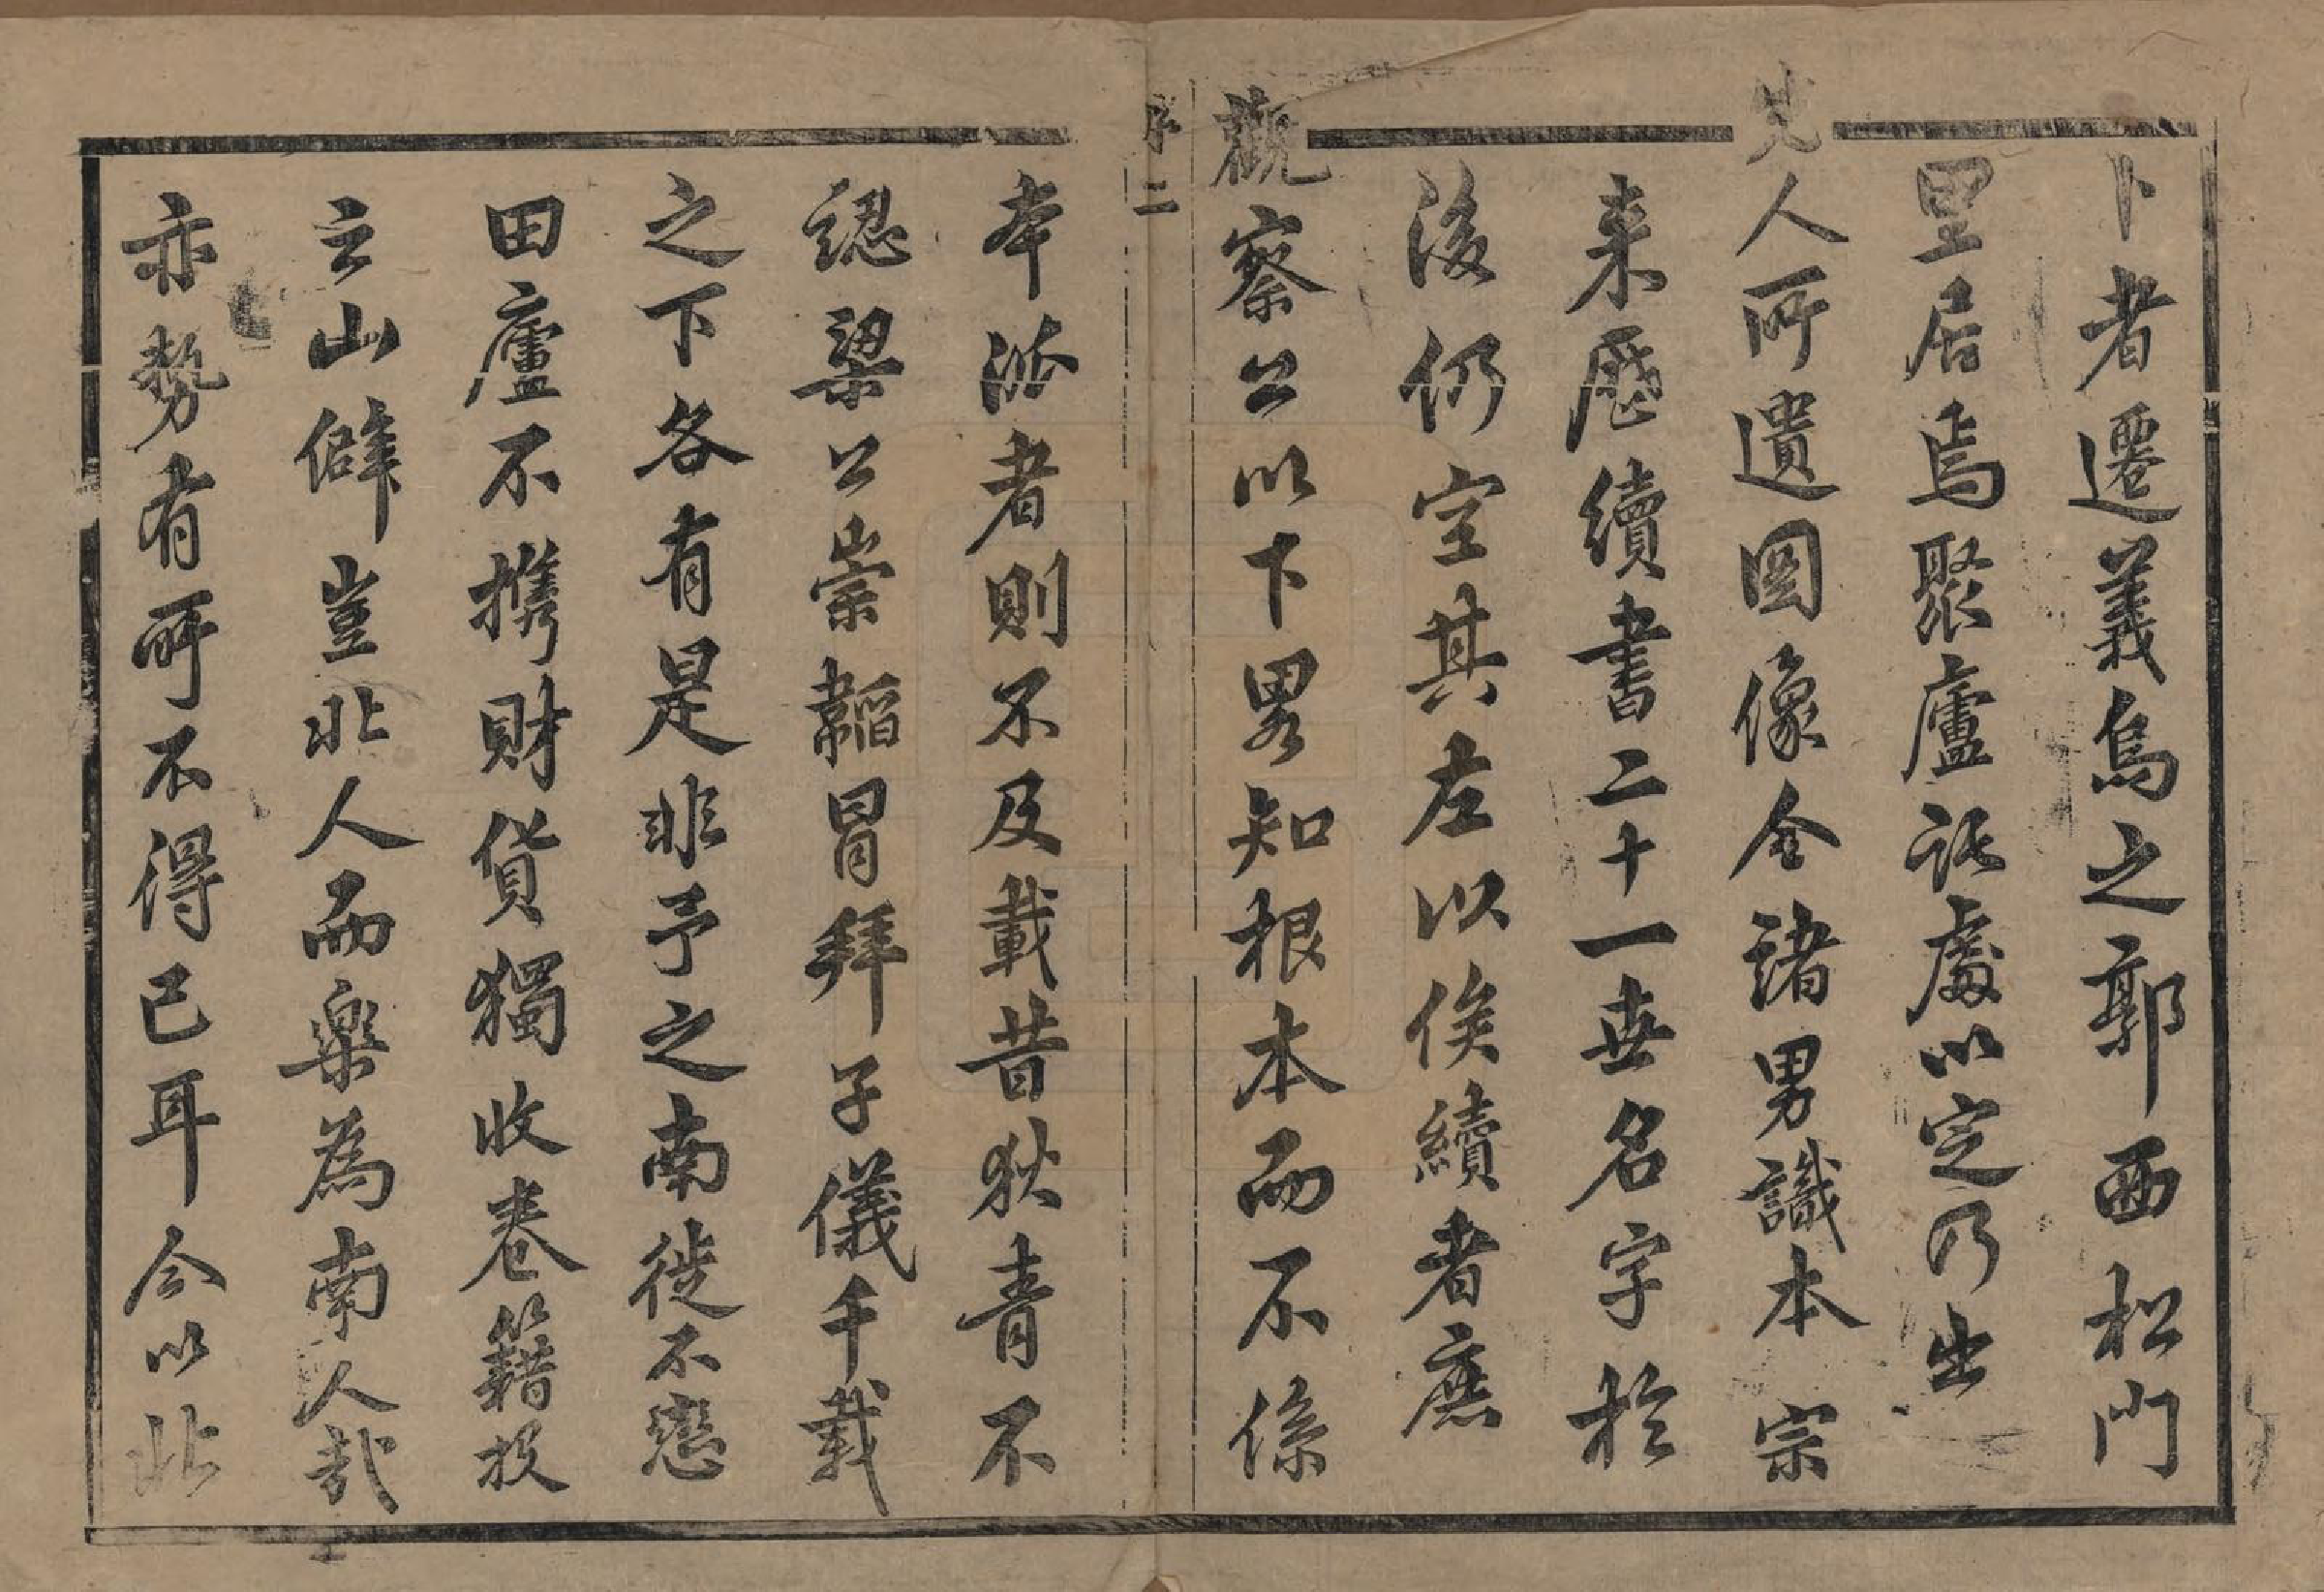 卜者遷義烏之郭西松門
里居焉聚廬託處以定乃出
先人所遺圖像令諸男識本宗
来歷續書二十一世名字於
後仍空其左以俟續者庶
觀察公以下畧知根本而不係
序二
本派者則不及載昔狄青不
認梁公崇韜冒拜子儀千載
之下各有是非予之南徙不戀
田廬不攜財貨獨收卷籍投
之山僻豈北人而樂為南人哉
亦勢有所不得已耳今以此